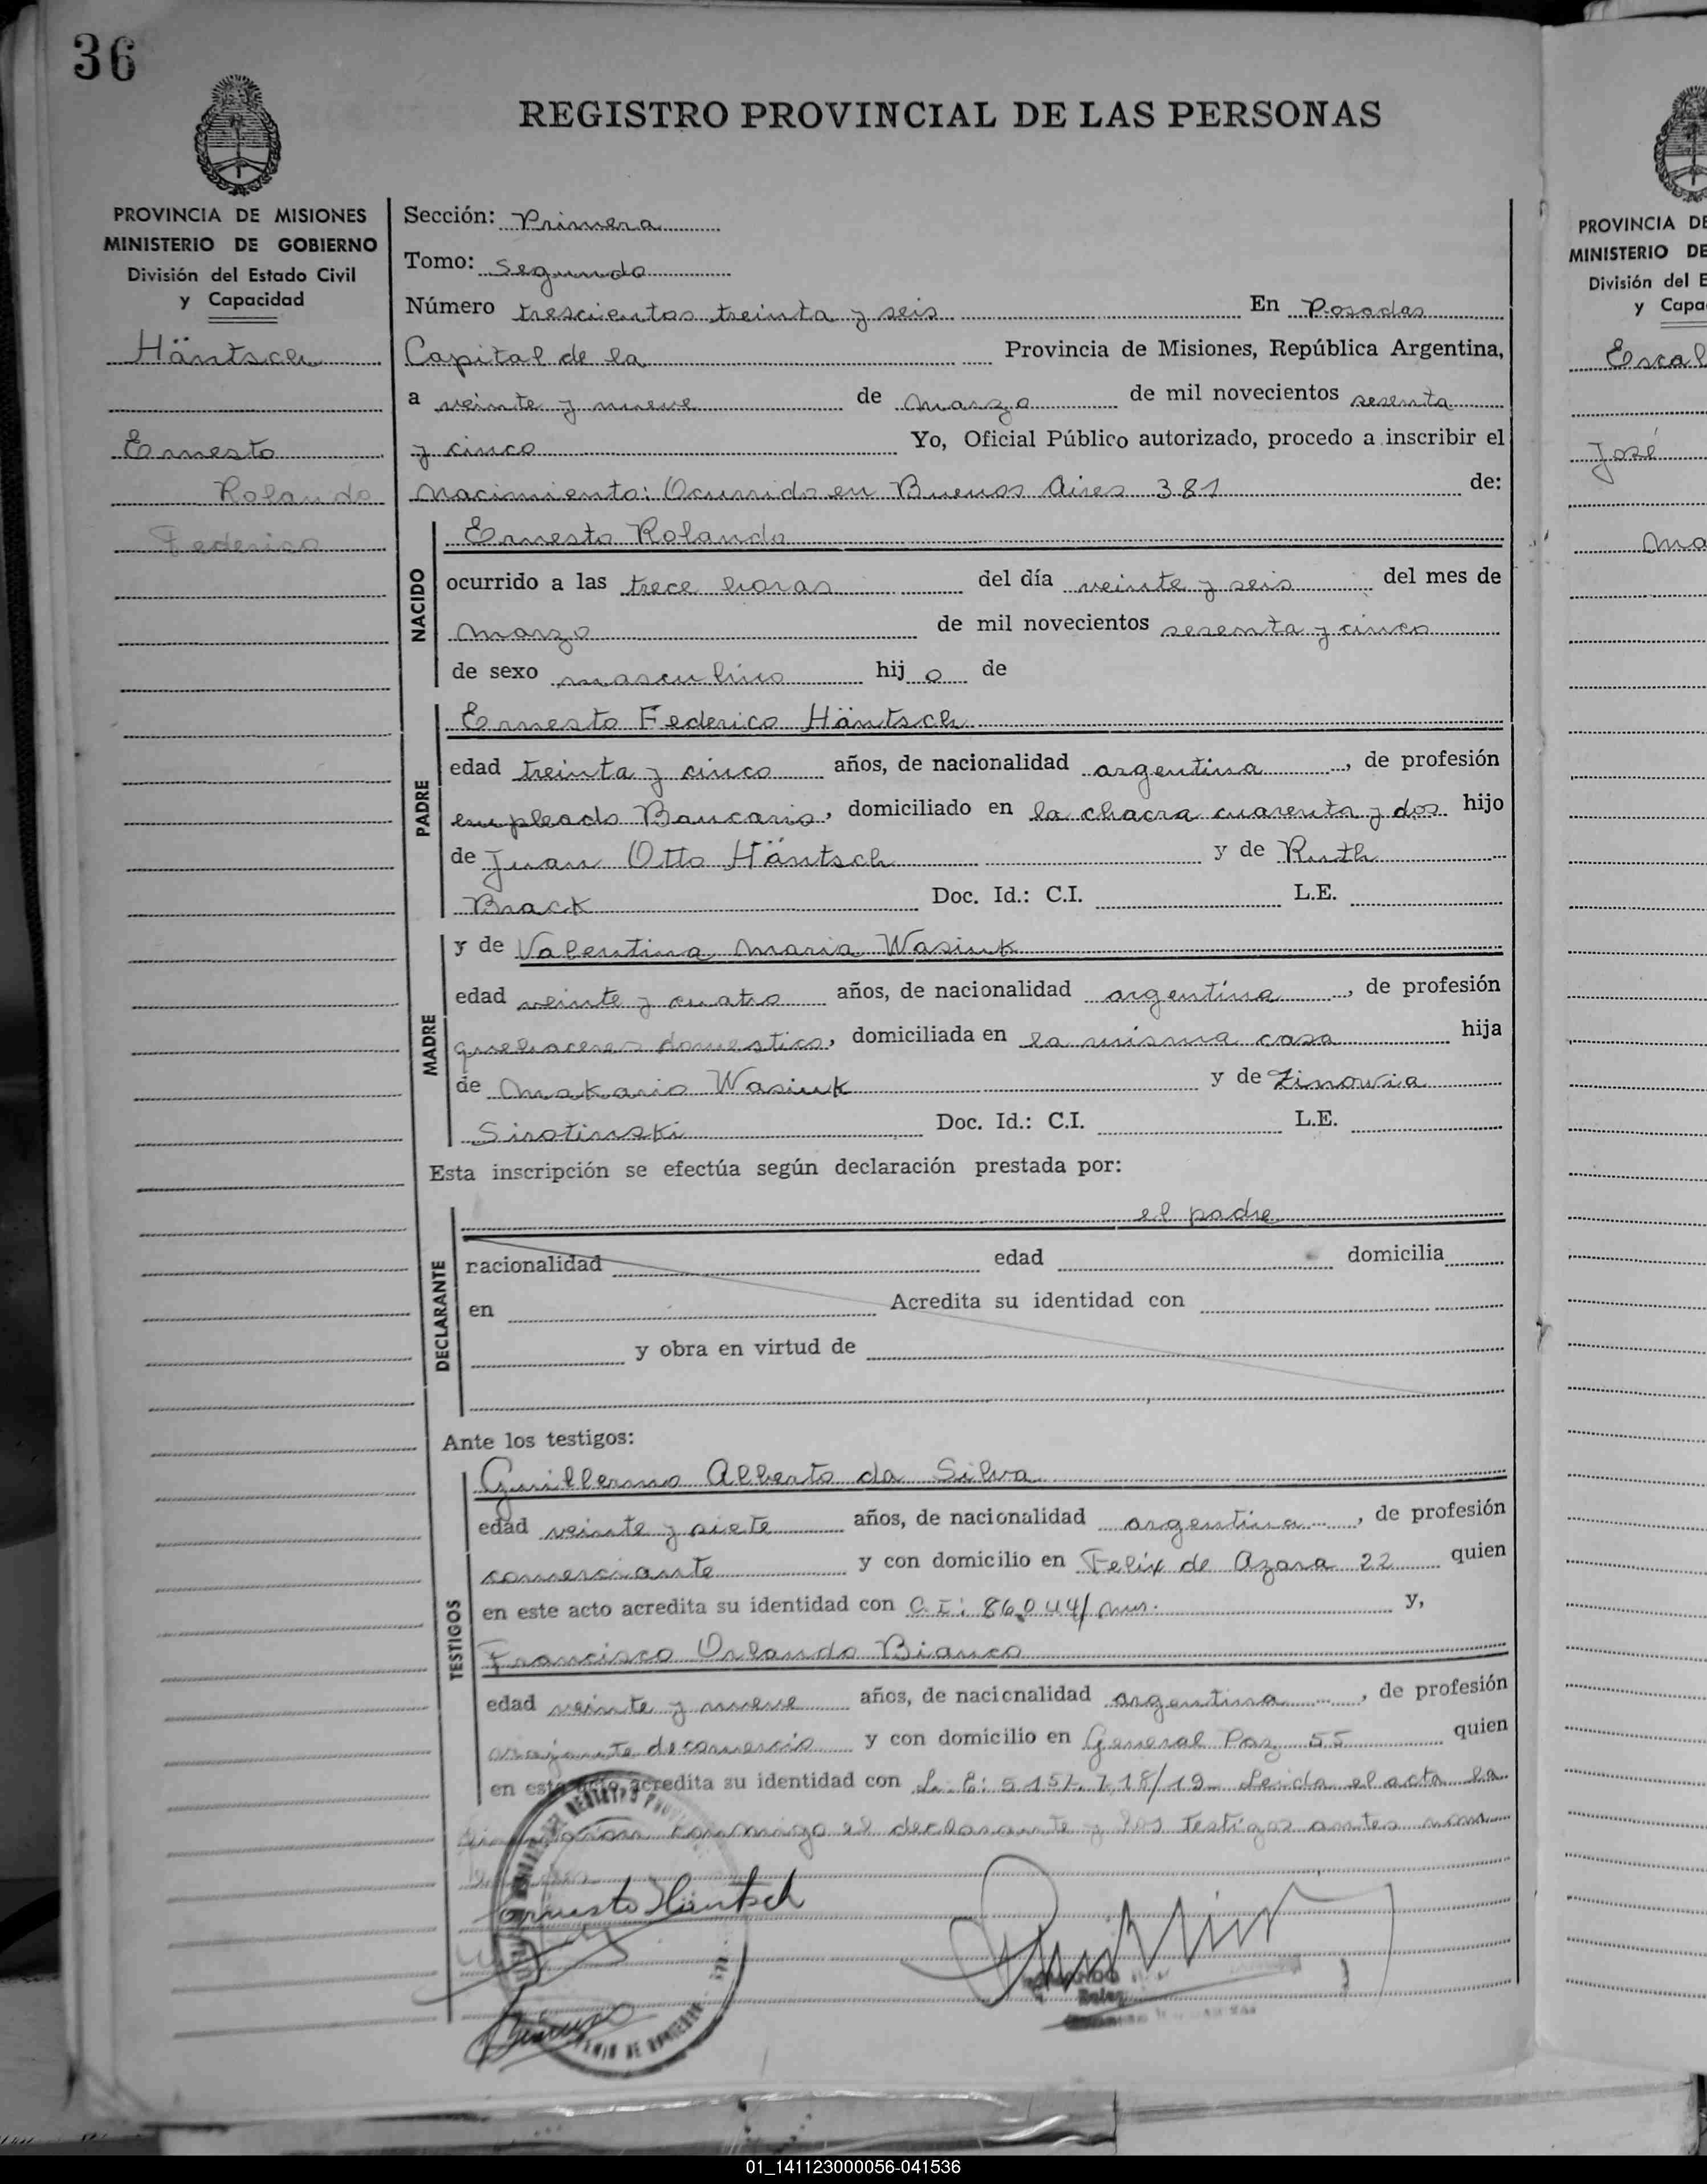 36
REGISTRO PROVINCIAL DE LAS PERSONAS
PROVINCIA DE MISIONES
MINISTERIO DE GOBIERNO
División del Estado Civil
y Capacidad
Häntsch
Ernesto
Rolando
Federico
Sección: Primera
Tomo: Segundo
Número trescientos treinta y seis En Posadas
Capital de la Provincia de Misiones, República Argentina,
a veinte y nueve de marzo de mil novecientos sesenta
y cinco Yo, Oficial Público autorizado, procedo a inscribir el
nacimiento: Ocurrido en Buenos Aires 381 de:
NACIDO
Ernesto Rolando
ocurrido a las trece horas del día veinte y seis del mes de
marzo de mil novecientos sesenta y cinco
de sexo masculino hijo de
PADRE
Ernesto Federico Häntsch
edad treinta y cinco años, de nacionalidad argentina, de profesión
empleado Bancario, domiciliado en la chacra cuarenta y dos hijo
de Juan Otto Häntsch y de Ruth
Brack Doc. Id.: C.I. L.E.
MADRE
y de Valentina Maria Wasiuk
edad veinte y cuatro años, de nacionalidad argentina, de profesión
quehaceres domestico, domiciliada en la misma casa hija
de Makario Wasiuk y de Zinowia
Sirotinski Doc. Id.: C.I. L.E.
Esta inscripción se efectúa según declaración prestada por:
DECLARANTE
el padre
nacionalidad edad domicilia
en Acredita su identidad con
y obra en virtud de
Ante los testigos:
TESTIGOS
Guillermo Alberto da Silva
edad veinte y siete años, de nacionalidad argentina, de profesión
comerciante y con domicilio en Felix de Azara 22 quien
en este acto acredita su identidad con C.I: 86.044/ y,
Francisco Orlando Bianco
edad veinte y nueve años, de nacionalidad argentina, de profesión
de comercio y con domicilio en General Paz 55 quien
en este acto acredita su identidad con L.E: Leida el acta la
conmigo el declarante y los testigos antes
Ernesto Häntsch
PROVINCIA DE
MINISTERIO DE
División del E
y Capa
Escal
José
Ma
01_141123000056-041536